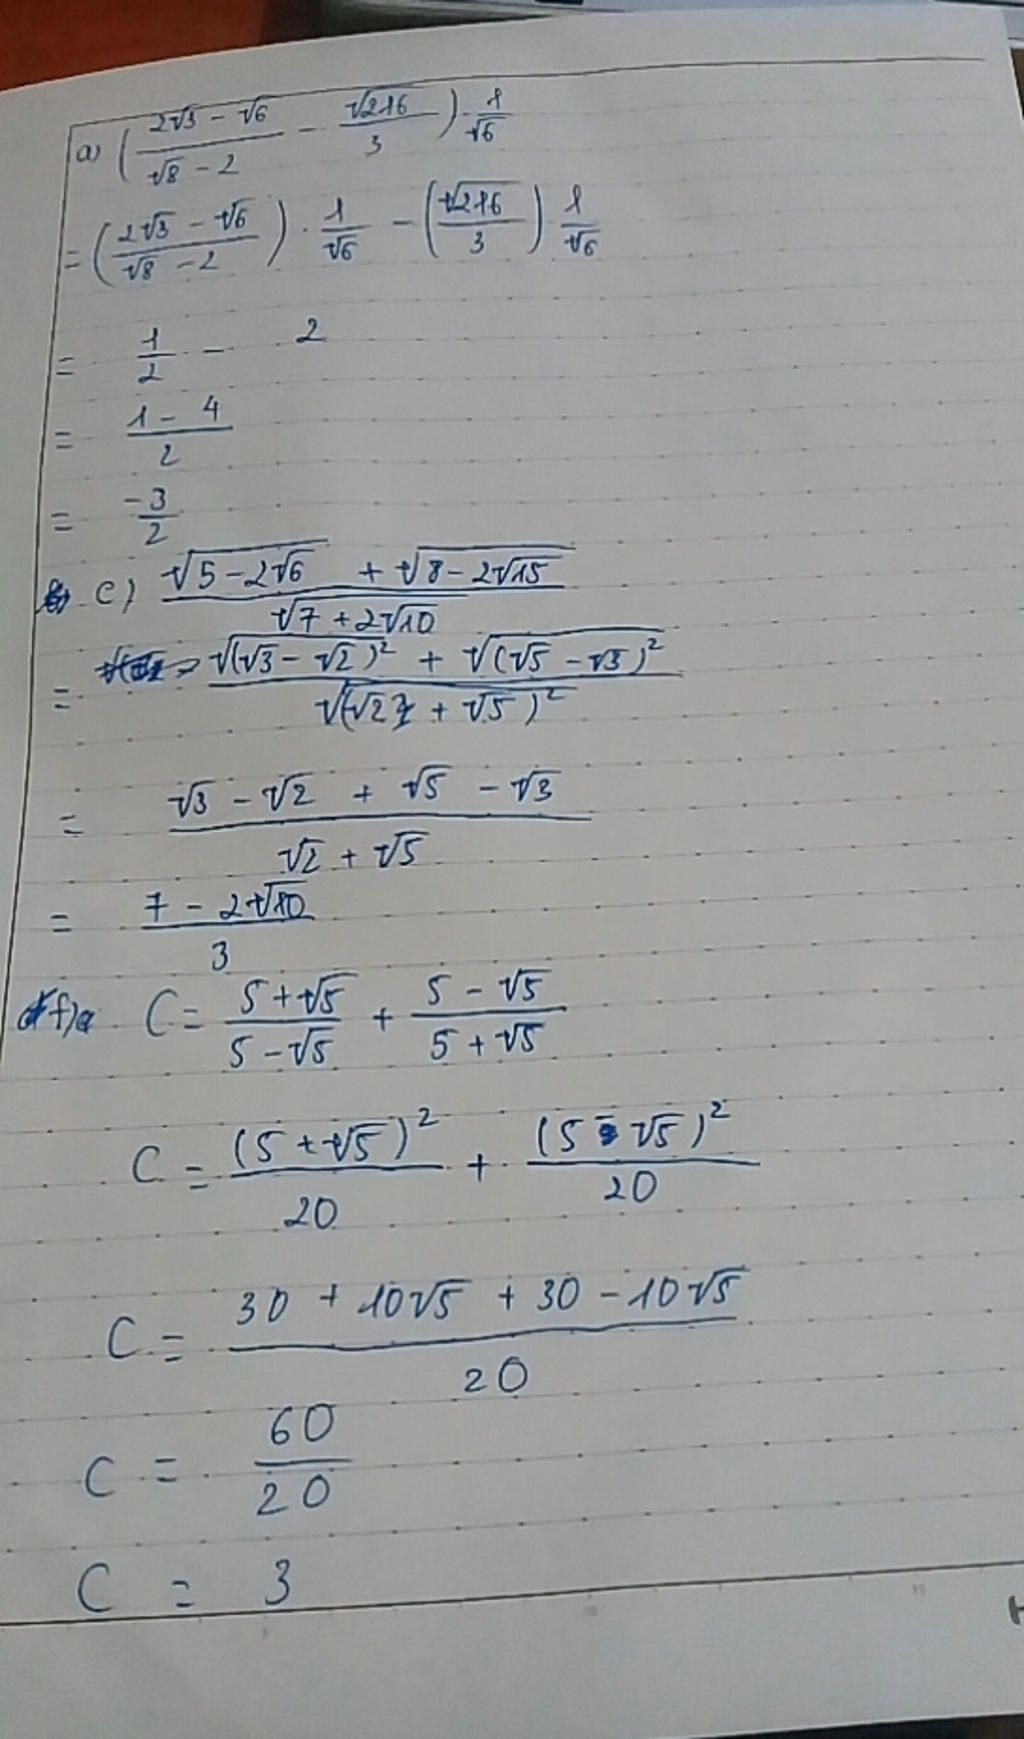 a) ( (2√3 - √6)/(√8 - 2) - √216/3 ) · 1/√6
= ( (2√3 - √6)/(√8 - 2) ) · 1/√6 - ( √216/3 ) 1/√6
= 1/2 - 2
= (1 - 4)/2
= -3/2
c) (√(5 - 2√6) + √(8 - 2√15))/√(7 + 2√10)
= (√((√3 - √2)²) + √((√5 - √3)²))/√((√2 + √5)²)
= (√3 - √2 + √5 - √3)/(√2 + √5)
= (7 - 2√10)/3
f) C = (5 + √5)/(5 - √5) + (5 - √5)/(5 + √5)
C = (5 + √5)²/20 + (5 - √5)²/20
C = (30 + 10√5 + 30 - 10√5)/20
C = 60/20
C = 3
5 10 15